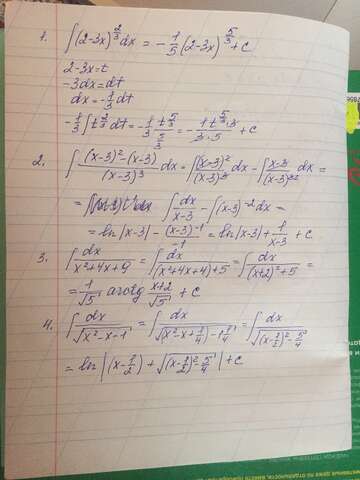 1. ∫(2-3x)^(2/3) dx = -1/5 (2-3x)^(5/3) + c
2-3x=t
-3dx=dt
dx=-1/3 dt
-1/3 ∫t^(2/3) dt = -1/3 t^(5/3)/(5/3) = -1·t^(5/3)·3/(3·5) + c
2. ∫ ((x-3)²-(x-3))/(x-3)³ dx = ∫ (x-3)²/(x-3)³ dx - ∫ (x-3)/(x-3)³ dx =
= ∫ dx/(x-3) - ∫(x-3)^(-2) dx =
= ln|x-3| - (x-3)^(-1)/(-1) = ln|x-3| + 1/(x-3) + c
3. ∫ dx/(x²+4x+9) = ∫ dx/((x²+4x+4)+5) = ∫ dx/((x+2)²+5) =
= 1/√5 arctg (x+2)/√5 + c
4. ∫ dx/√(x²-x-1) = ∫ dx/√((x²-x+1/4)-1 1/4) = ∫ dx/√((x-1/2)²-5/4)
= ln|(x-1/2) + √((x-1/2)²-5/4)| + c